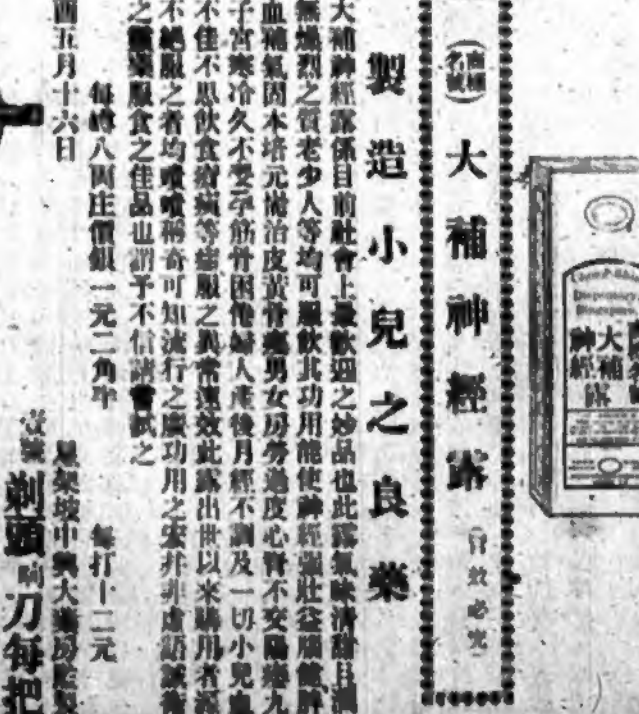 大補
神經
露
大補神經露 (冒效必究)
製造小兒之良藥
大補神經露係目前社會上最歡迎之妙品也此露氣味清甜且
無燥烈之質老少人等均可服飲其功用能使神經強壯益腦健脾
血補氣固本培元能治皮黃骨痛男女房勞過度心腎不交陽痿九
子宮寒冷久不受孕筋骨困倦婦人產後月經不調及一切小兒血
不佳不思飲食癆病等症服之異常速效此露出世以來購用者源
不絕服之者均嘖嘖稱奇可知流行之廣功用之宏并非虛語誠為
之靈藥服食之佳品也謂予不信請嘗試之
每罇八両庄價銀一元二角半 每打十二元
酉五月十六日 星架坡中興大藥房監製
壹號剃頭刀每把